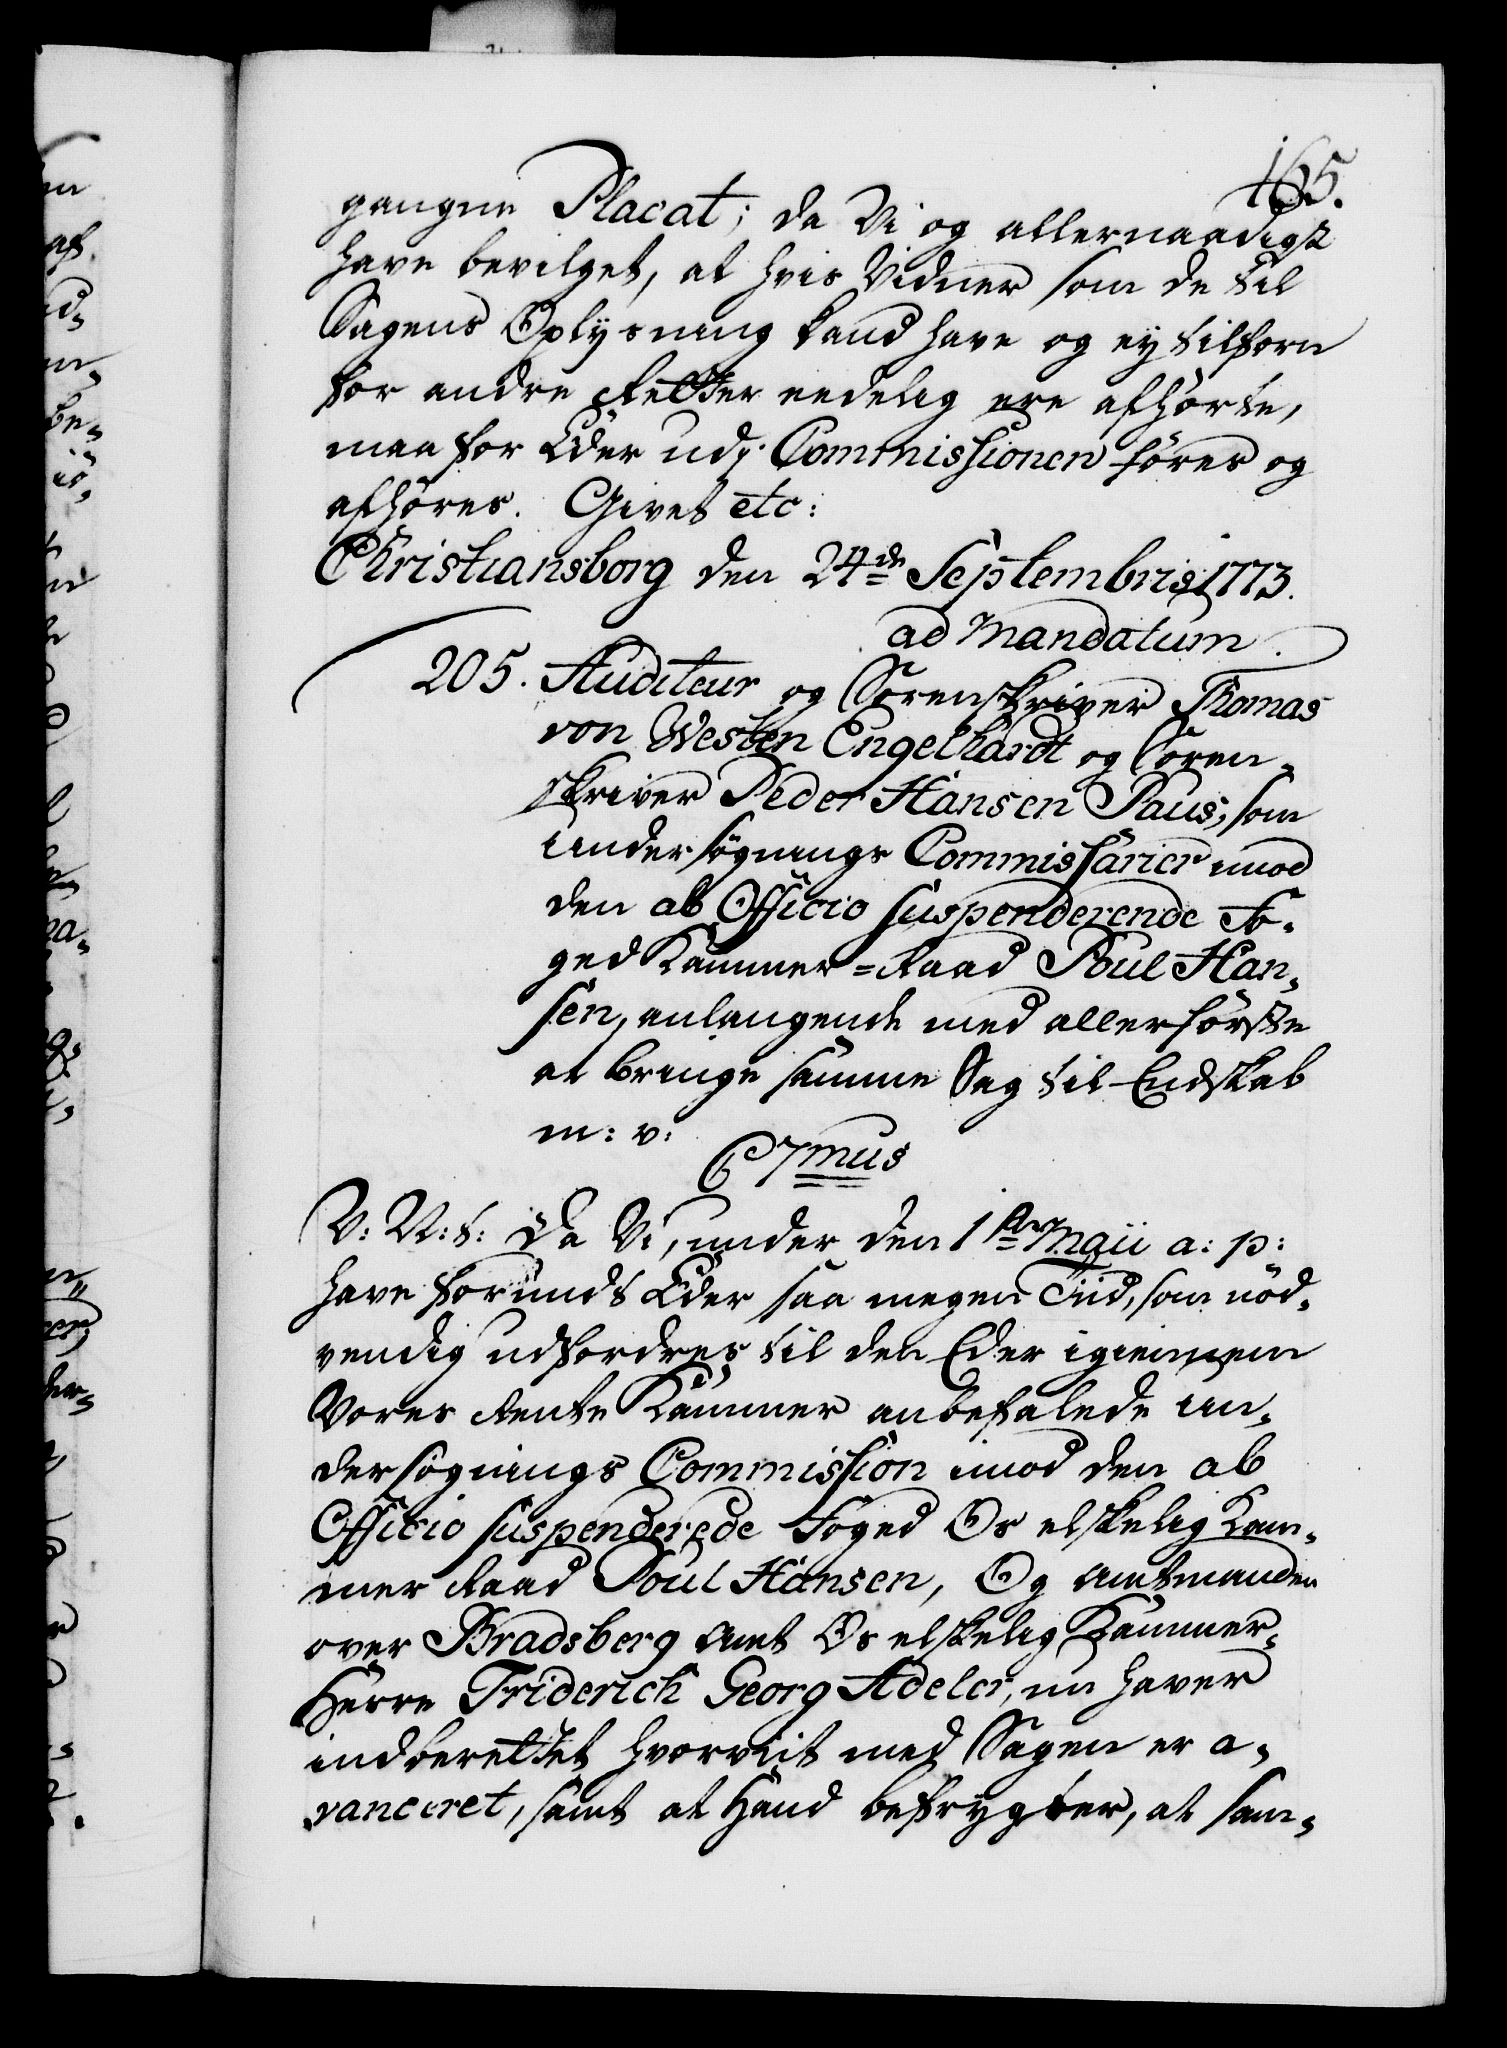 165.
gangne Placat; da Vi og allernaadigst
have bevilget, at hvis Vidner som de til
Sagens Oplysning kand have og ey tilforn
for andre Retter eedelig ere afhørte,
maa for Eder udj Commissionen føres og
afhøres. Givet etc:
Christiansborg den 24de Septembris 1773.
ad Mandatum.
205. Auditeur og Sorenskriver Thomas
von Westen Engelhardt og Soren-
skriver Peder Hansen Paus, som
undersøgnings Commissarier imod
den ab Officio suspenderende Fo-
ged Kammer=Raad Poul Han-
sen, anlangende med allerførste
at bringe samme Sag til Endskab
m: v:
C 7mus
V: V: t: Da Vi, under den 1ste Maii a: p:
have forundt Eder saa megen Tiid, som nød-
vendig udfordres til den Eder igiennem
Vores Rente Kammer anbefalede un-
dersøgnings Commission imod den ab
Officio suspenderede Foged Os elskelig Kam-
mer Raad Poul Hansen, Og Amtmanden
over Bradsberg Amt Os elskelig Kammer-
Herre Friderich Georg Adeler, nu haver
indberettet hvorviit med Sagen er a-
vanceret, samt at Hand befrygter, at sam-